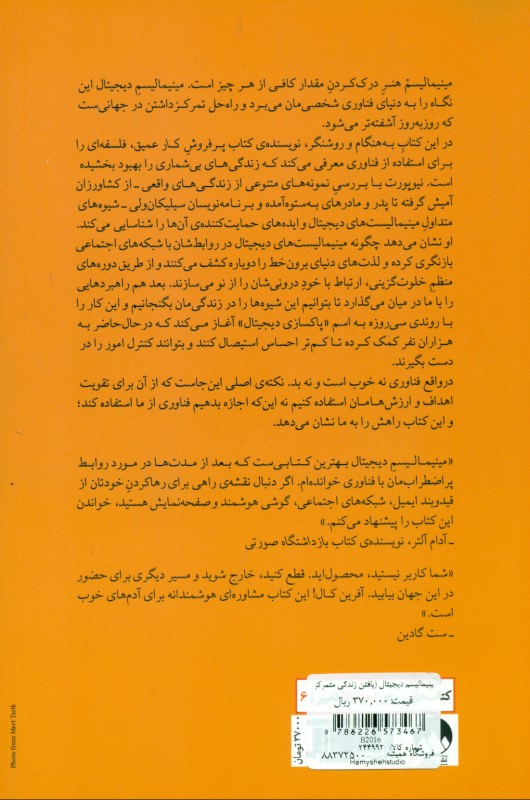 مینیمالیسمْ هنرِ درک‌کردنِ مقدار کافی از هر چیز است. مینیمالیسمِ دیجیتال این
نگاه را به دنیای فناوری شخصی‌مان می‌برد و راه‌حل تمرکزداشتن در جهانی‌ست
که روزبه‌روز آشفته‌تر می‌شود.
در این کتابِ به‌هنگام و روشنگر، نویسنده‌ی کتاب پرفروشِ کار عمیق، فلسفه‌ای را
برای استفاده از فناوری معرفی می‌کند که زندگی‌های بی‌شماری را بهبود بخشیده
است. نیوپورت با بررسی نمونه‌های متنوعی از زندگی‌های واقعی ـ از کشاورزان
آمیش گرفته تا پدر و مادرهای به‌ستوه‌آمده و برنامه‌نویسان سیلیکان‌ولی ـ شیوه‌های
متداولِ مینیمالیست‌های دیجیتال و ایده‌های حمایت‌کننده‌ی آن‌ها را شناسایی می‌کند.
او نشان می‌دهد چگونه مینیمالیست‌های دیجیتال در روابط‌شان با شبکه‌های اجتماعی
بازنگری کرده و لذت‌های دنیای برون‌خط را دوباره کشف می‌کنند و از طریق دوره‌های
منظمِ خلوت‌گزینی، ارتباط با خودِ درونی‌شان را از نو می‌سازند. بعد هم راهبردهایی
را با ما در میان می‌گذارد تا بتوانیم این شیوه‌ها را در زندگی‌مان بگنجانیم و این کار را
با روندی سی‌روزه به اسم «پاکسازی دیجیتال» آغاز می‌کند که درحال‌حاضر به
هزاران نفر کمک کرده تا کم‌تر احساس استیصال کنند و بتوانند کنترل امور را در
دست بگیرند.
درواقع فناوری نه خوب است و نه بد. نکته‌ی اصلی این‌جاست که از آن برای تقویت
اهداف و ارزش‌هامان استفاده کنیم نه این‌که اجازه بدهیم فناوری از ما استفاده کند؛
و این کتاب راهش را به ما نشان می‌دهد.
«مینیمالیسم دیجیتال بهترین کتابی‌ست که بعد از مدت‌ها در مورد روابط
پراضطراب‌مان با فناوری خوانده‌ام. اگر دنبال نقشه‌ی راهی برای رهاکردنِ خودتان از
قیدوبند ایمیل، شبکه‌های اجتماعی، گوشی هوشمند و صفحه‌نمایش هستید، خواندن
این کتاب را پیشنهاد می‌کنم.»
ـ آدام آلتر، نویسنده‌ی کتاب بازداشتگاه صورتی
«شما کاربر نیستید، محصول‌اید. قطع کنید، خارج شوید و مسیر دیگری برای حضور
در این جهان بیابید. آفرین کال! این کتاب مشاوره‌ای هوشمندانه برای آدم‌های خوب
است.»
ـ ست گادین
Photo from Mert Tarik
ینیمالیسم دیجیتال (یافتن زندگی متمرکز
قیمت: ۳۷۰,۰۰۰ ریال
9 786226 573467
B2016
شماره کالا: ۲۴۴۹۹۲
فروشگاه همیشه ۸۸۳۷۲۵۰۰
Hamyshehstudio
۳۷۰۰۰ تومان